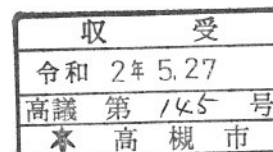 収受
令和 2年 5.27
高議 第 145 号
高槻市